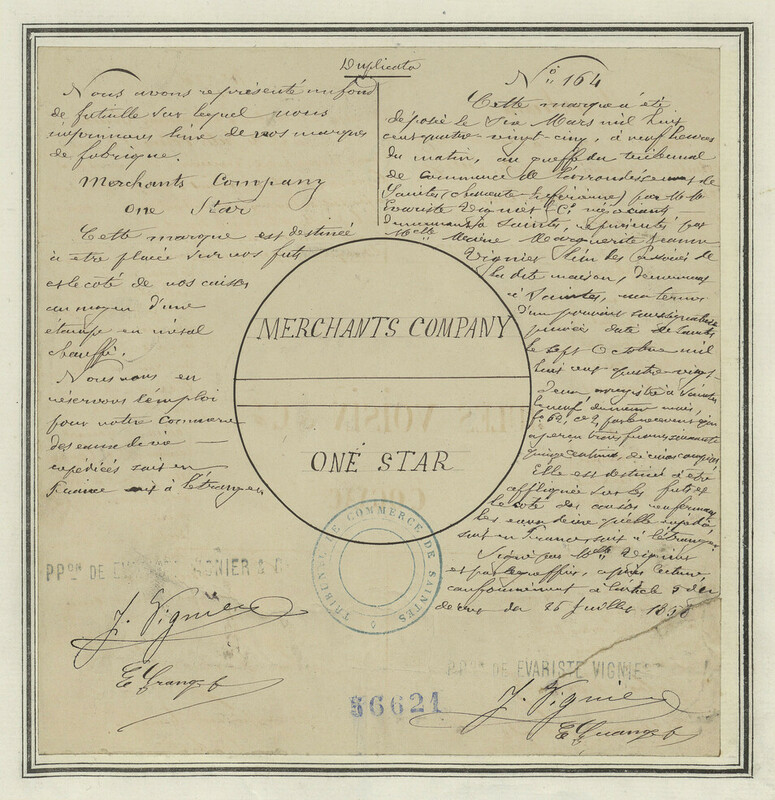 Duplicata
Nous avons représenté un fond
de futaille sur lequel nous
imprimons l'une de nos marques
de fabrique.
Merchants Company
One Star
Cette marque est destinée
à être placée sur nos futs
et le côté de nos caisses
au moyen d'une
étampe en métal
chauffé.
Nous nous en
réservons l'emploi
pour notre commerce
des eaux de vie
expédiées soit en
France soit à l'étranger
PPon DE EVARISTE VIGNIER & C
J. Vignier
E Grange
No 164
Cette marque a été
déposée le Six Mars mil huit
cent quatre-vingt-cinq, à neuf heures
du matin, au greffe du tribunal
de Commerce de l'arrondissement de
Saintes (Charente-Inférieure) par MM
Evariste Vignier & Cie négociants
demeurant à Saintes, représentés par
Melle Marie Marguerite Jeanne
Vignier l'un des associés de
la dite maison, demeurant
à Saintes, aux termes
d'un pouvoir sous signature
privée daté de Saintes
le sept Octobre mil
huit cent quatre-vingt-
deux enregistré à Saintes
le neuf du même mois,
fo 62, ce 2, par le receveur qui
a perçu trois francs soixante
quinze centimes, décimes compris
Elle est destinée à être
appliquée sur les futs et
le côté des caisses renfermant
les eaux de vie qu'elle expédie
soit en France soit à l'étranger
Signé par Melle Vignier
et par le greffier, après lecture,
conformément à l'article 5 du
décret du 26 Juillet 1858
PPon DE EVARISTE VIGNIER
J. Vignier
E Grange
MERCHANTS COMPANY
ONE STAR
TRIBUNAL DE COMMERCE DE SAINTES
56621